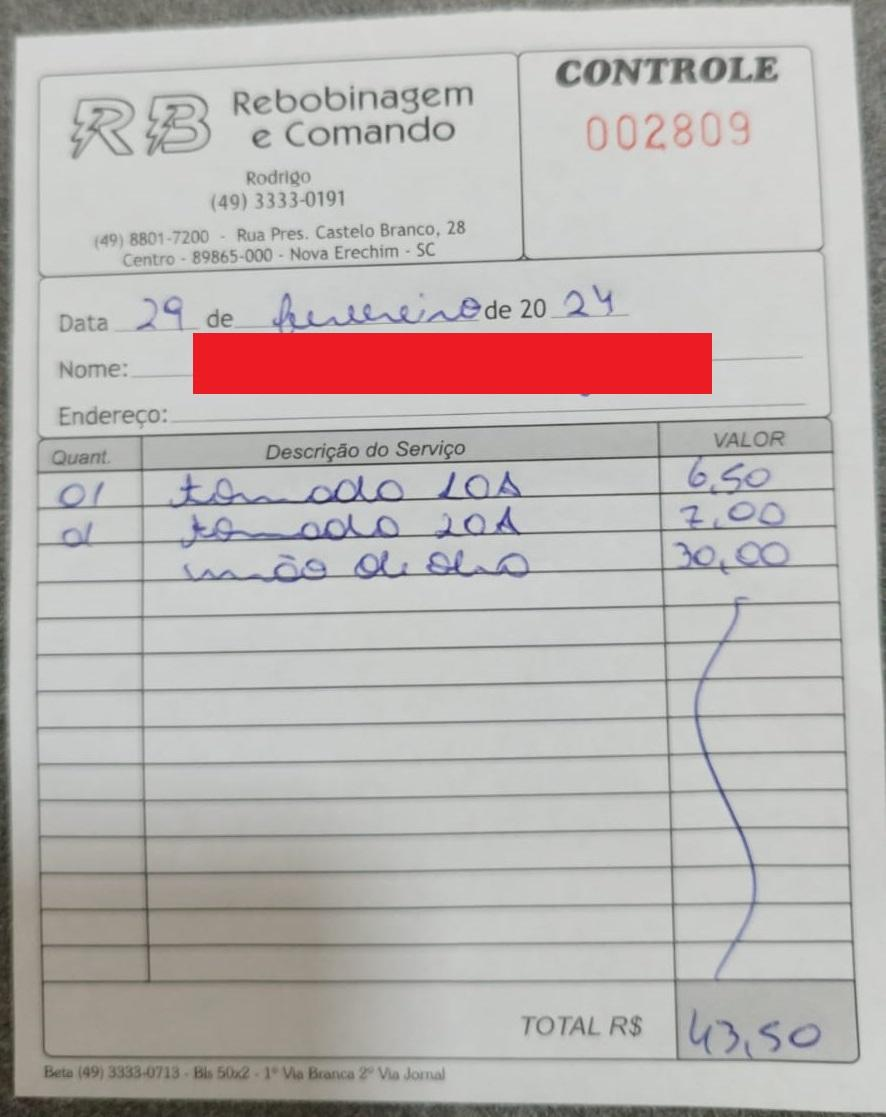 RB Rebobinagem
e Comando
Rodrigo
(49) 3333-0191
(49) 8801-7200 - Rua Pres. Castelo Branco, 28
Centro - 89865-000 - Nova Erechim - SC
CONTROLE
002809
Data 29 de fevereiro de 20 24
Nome:
Endereço:
Quant. Descrição do Serviço VALOR
01 tomada 10A 6,50
01 tomada 20A 7,00
mão de obra 30,00
TOTAL R$ 43,50
Beta (49) 3333-0713 - Bls 50x2 - 1ª Via Branca 2ª Via Jornal